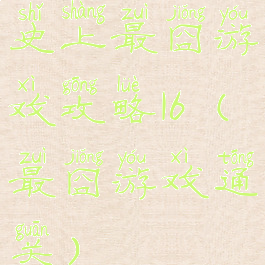 shǐ shàng zuì jiǒng yóu
史上最囧游
xì gōng lüè
戏攻略16（
zuì jiǒng yóu xì tōng
最囧游戏通
guān
关）